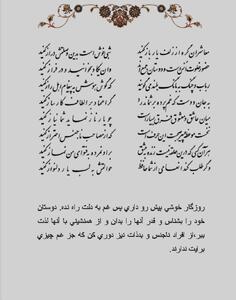 معاشران گره از زلف یار باز کنید
شبی خوش است بدین قصه‌اش دراز کنید
حضور خلوت انس است و دوستان جمعند
و ان یکاد بخوانید و در فراز کنید
رباب و چنگ به بانگ بلند می‌گویند
که گوش هوش به پیغام اهل راز کنید
به جان دوست که غم پرده بر شما ندرد
گر اعتماد بر الطاف کارساز کنید
میان عاشق و معشوق فرق بسیار است
چو یار ناز نماید شما نیاز کنید
نخست موعظه پیر صحبت این حرف است
که از مصاحب ناجنس احتراز کنید
هر آن کسی که در این حلقه نیست زنده به عشق
بر او نمرده به فتوای من نماز کنید
وگر طلب کند انعامی از شما حافظ
حوالتش به لب یار دلنواز کنید
روزگار خوشي بيش رو داري پس غم به دلت راه نده. دوستان
خود را بشناس و قدر آنها را بدان و از همنشيني با آنها لذت
ببر،از افراد ناجنس و بدذات نيز دوري كن كه جز غم چيزي
برايت ندارند.